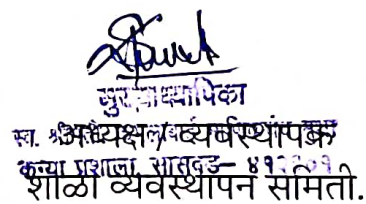 मुख्याध्यापिका
अध्यक्ष / व्यवस्थापक
कन्या प्रशाला, सासवड – ४१२३०१
शाळा व्यवस्थापन समिती.